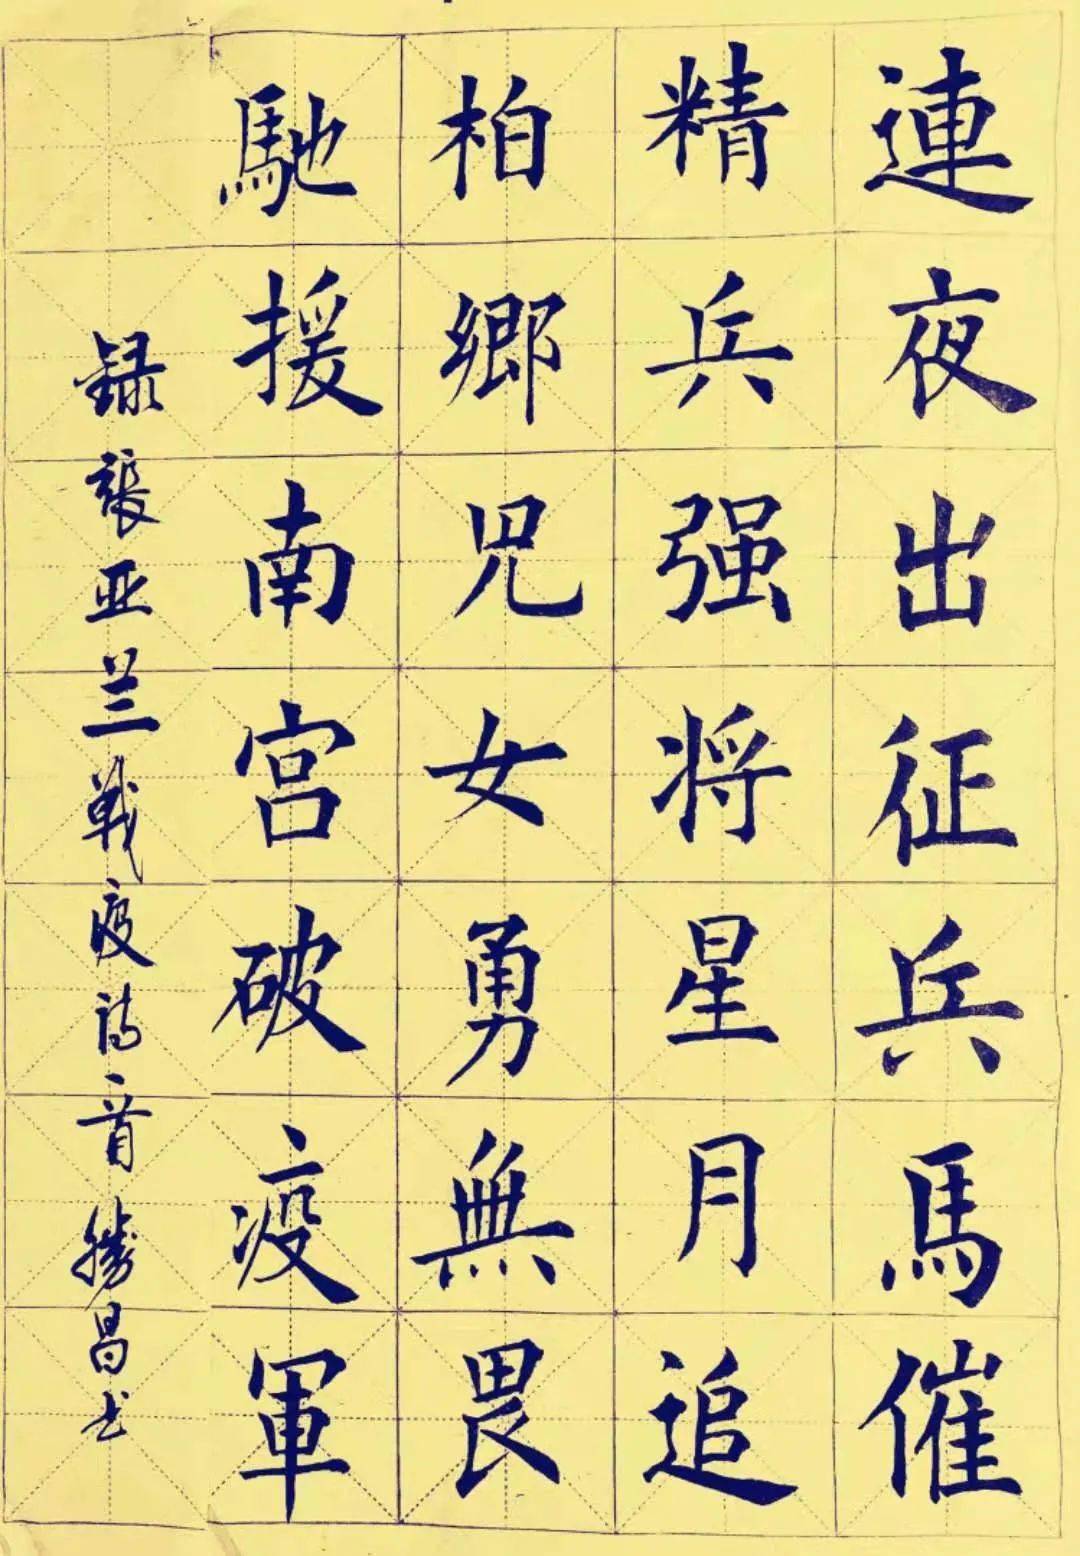 連夜出征兵馬催
精兵强将星月追
柏鄉兒女勇無畏
馳援南宫破疫軍
録張亚兰戰疫诗首勝昌书